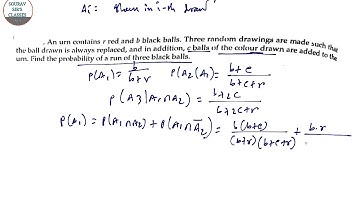 SOURAV
SIR'S
CLASSES
Ai:
in i-th draw
. An urn contains r red and b black balls. Three random drawings are made such that
the ball drawn is always replaced, and in addition, c balls of the colour drawn are added to the
urn. Find the probability of a run of three black balls.
P(A₁) = b/(b+r) P(A₂|A₁) = (b+c)/(b+c+r)
P(A₃|A₁∩A₂) = (b+2c)/(b+2c+r)
P(A₁) = P(A₁∩A₂) + P(A₁∩A̅₂) = b(b+c)/((b+r)(b+c+r)) + b.r